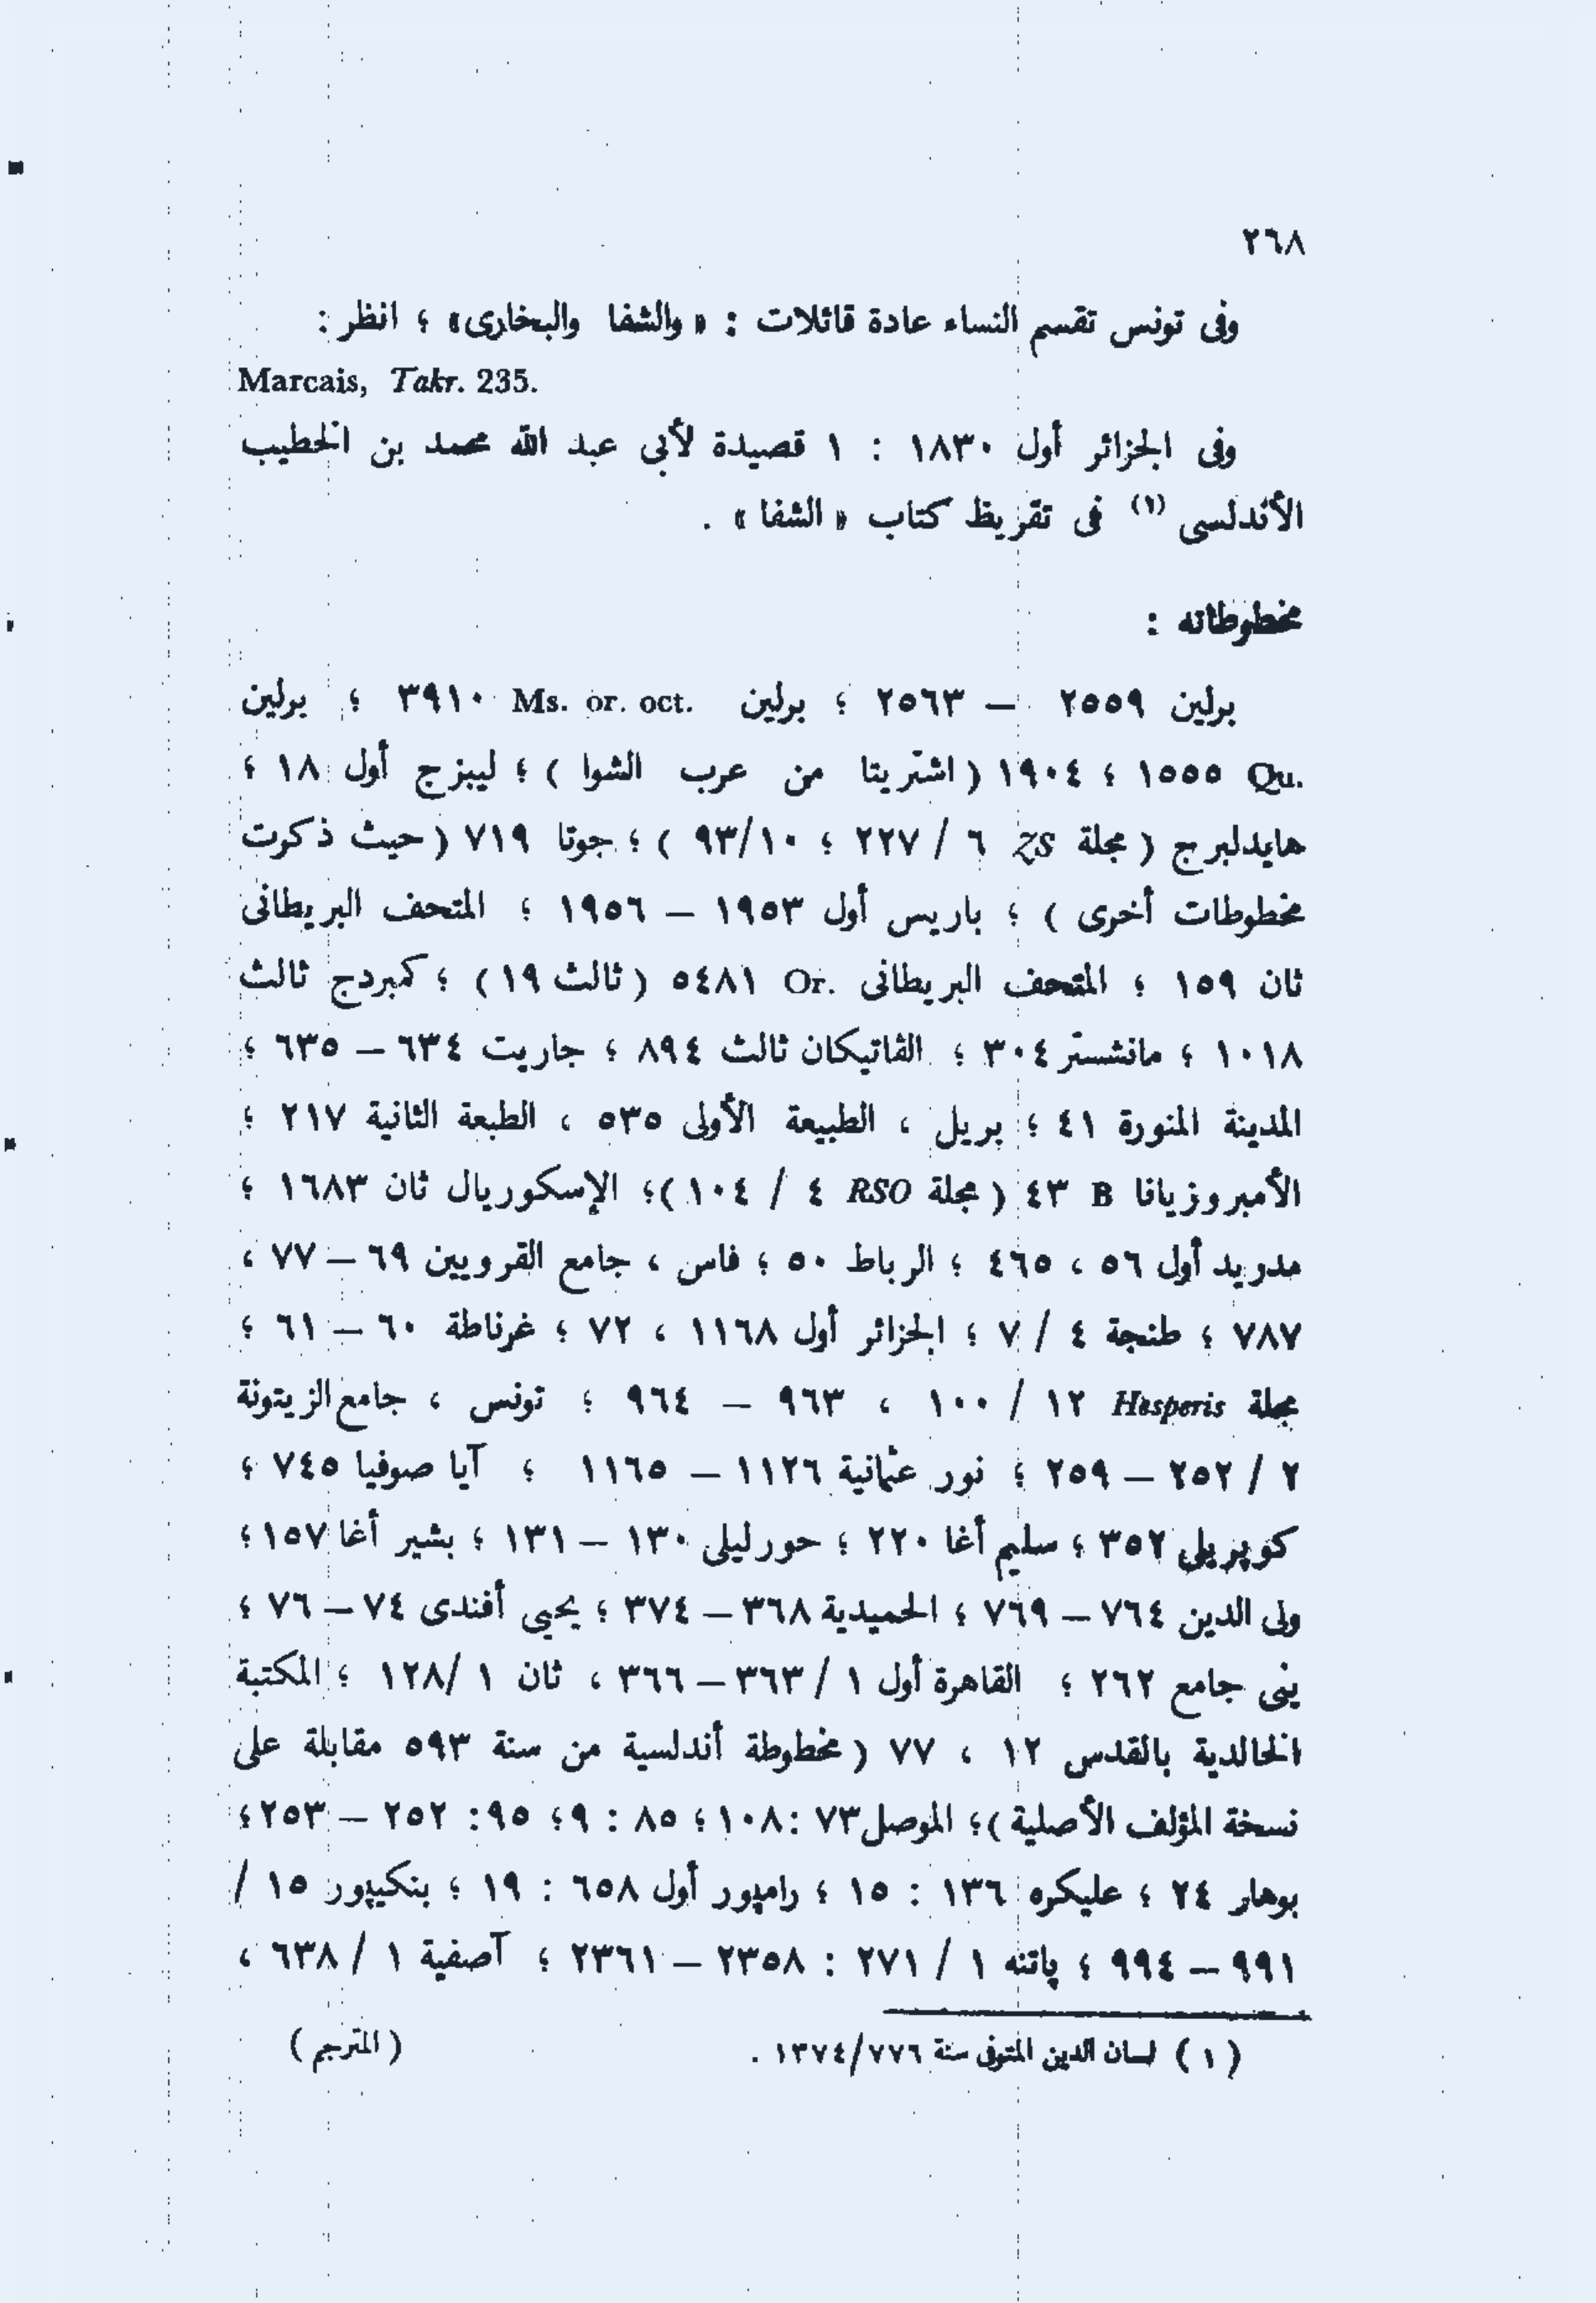 ٢٦٨
وفى تونس تقسم النساء عادة قائلات : « والشفا والبخارى» ؛ انظر :
Marcais, Takr. 235.
وفى الجزائر أول ١٨٣٠ : ١ قصيدة لأبى عبد الله محمد بن الخطيب
الأندلسى (١) فى تقريظ كتاب « الشفا » .
مخطوطاته :
برلين ٢٥٥٩ – ٢٥٦٣ ؛ برلين Ms. or. oct. ٣٩١٠ ؛ برلين
Qu. ١٥٥٥ ؛ ١٩٠٤ ( اشتريتا من عرب الشوا ) ؛ ليبزج أول ١٨ ؛
هايدلبرج ( مجلة ZS ٦ / ٢٢٧ ؛ ٩٣/١٠ ) ؛ جوتا ٧١٩ ( حيث ذكرت
مخطوطات أخرى ) ؛ باريس أول ١٩٥٣ – ١٩٥٦ ؛ المتحف البريطانى
ثان ١٥٩ ؛ المتحف البريطانى Or. ٥٤٨١ ( ثالث ١٩ ) ؛ كمبردج ثالث
١٠١٨ ؛ مانشستر ٣٠٤ ؛ الڤاتيكان ثالث ٨٩٤ ؛ جاريت ٦٣٤ – ٦٣٥ ؛
المدينة المنورة ٤١ ؛ بريل ، الطبيعة الأولى ٥٣٥ ، الطبعة الثانية ٢١٧ ؛
الأمبروزيانا B ٤٣ ( مجلة RSO ٤ / ١٠٤ )؛ الإسكوريال ثان ١٦٨٣ ؛
مدريد أول ٥٦ ، ٤٦٥ ؛ الرباط ٥٠ ؛ فاس ، جامع القرويين ٦٩ – ٧٧ ،
٧٨٧ ؛ طنجة ٤ / ٧ ؛ الجزائر أول ١١٦٨ ، ٧٢ ؛ غرناطة ٦٠ – ٦١ ؛
مجلة Hesperis ١٢ / ١٠٠ ، ٩٦٣ – ٩٦٤ ؛ تونس ، جامع الزيتونة
٢ / ٢٥٢ – ٢٥٩ ؛ نور عثمانية ١١٢٦ – ١١٦٥ ؛ آيا صوفيا ٧٤٥ ؛
كوپريلى ٣٥٢ ؛ سليم أغا ٢٢٠ ؛ حورليلى ١٣٠ – ١٣١ ؛ بشير أغا ١٥٧ ؛
ولى الدين ٧٦٤ – ٧٦٩ ؛ الحميدية ٣٦٨ – ٣٧٤ ؛ يحيى أفندى ٧٤ – ٧٦ ؛
ينى جامع ٢٦٢ ؛ القاهرة أول ١ / ٣٦٣ – ٣٦٦ ، ثان ١ /١٢٨ ؛ المكتبة
الخالدية بالقدس ١٢ ، ٧٧ ( مخطوطة أندلسية من سنة ٥٩٣ مقابلة على
نسخة المؤلف الأصلية ) ؛ الموصل ٧٣ : ١٠٨ ؛ ٨٥ : ٩ ؛ ٩٥ : ٢٥٢ – ٢٥٣ ؛
بوهار ٢٤ ؛ عليكره ١٣٦ : ١٥ ؛ رامپور أول ٦٥٨ : ١٩ ؛ بنكيپور ١٥ /
٩٩١ – ٩٩٤ ؛ پاتنه ١ / ٢٧١ : ٢٣٥٨ – ٢٣٦١ ؛ آصفية ١ / ٦٣٨ ،
( ١ ) لسان الدين المتوفى سنة ٧٧٦/١٣٧٤ . ( المترجم )